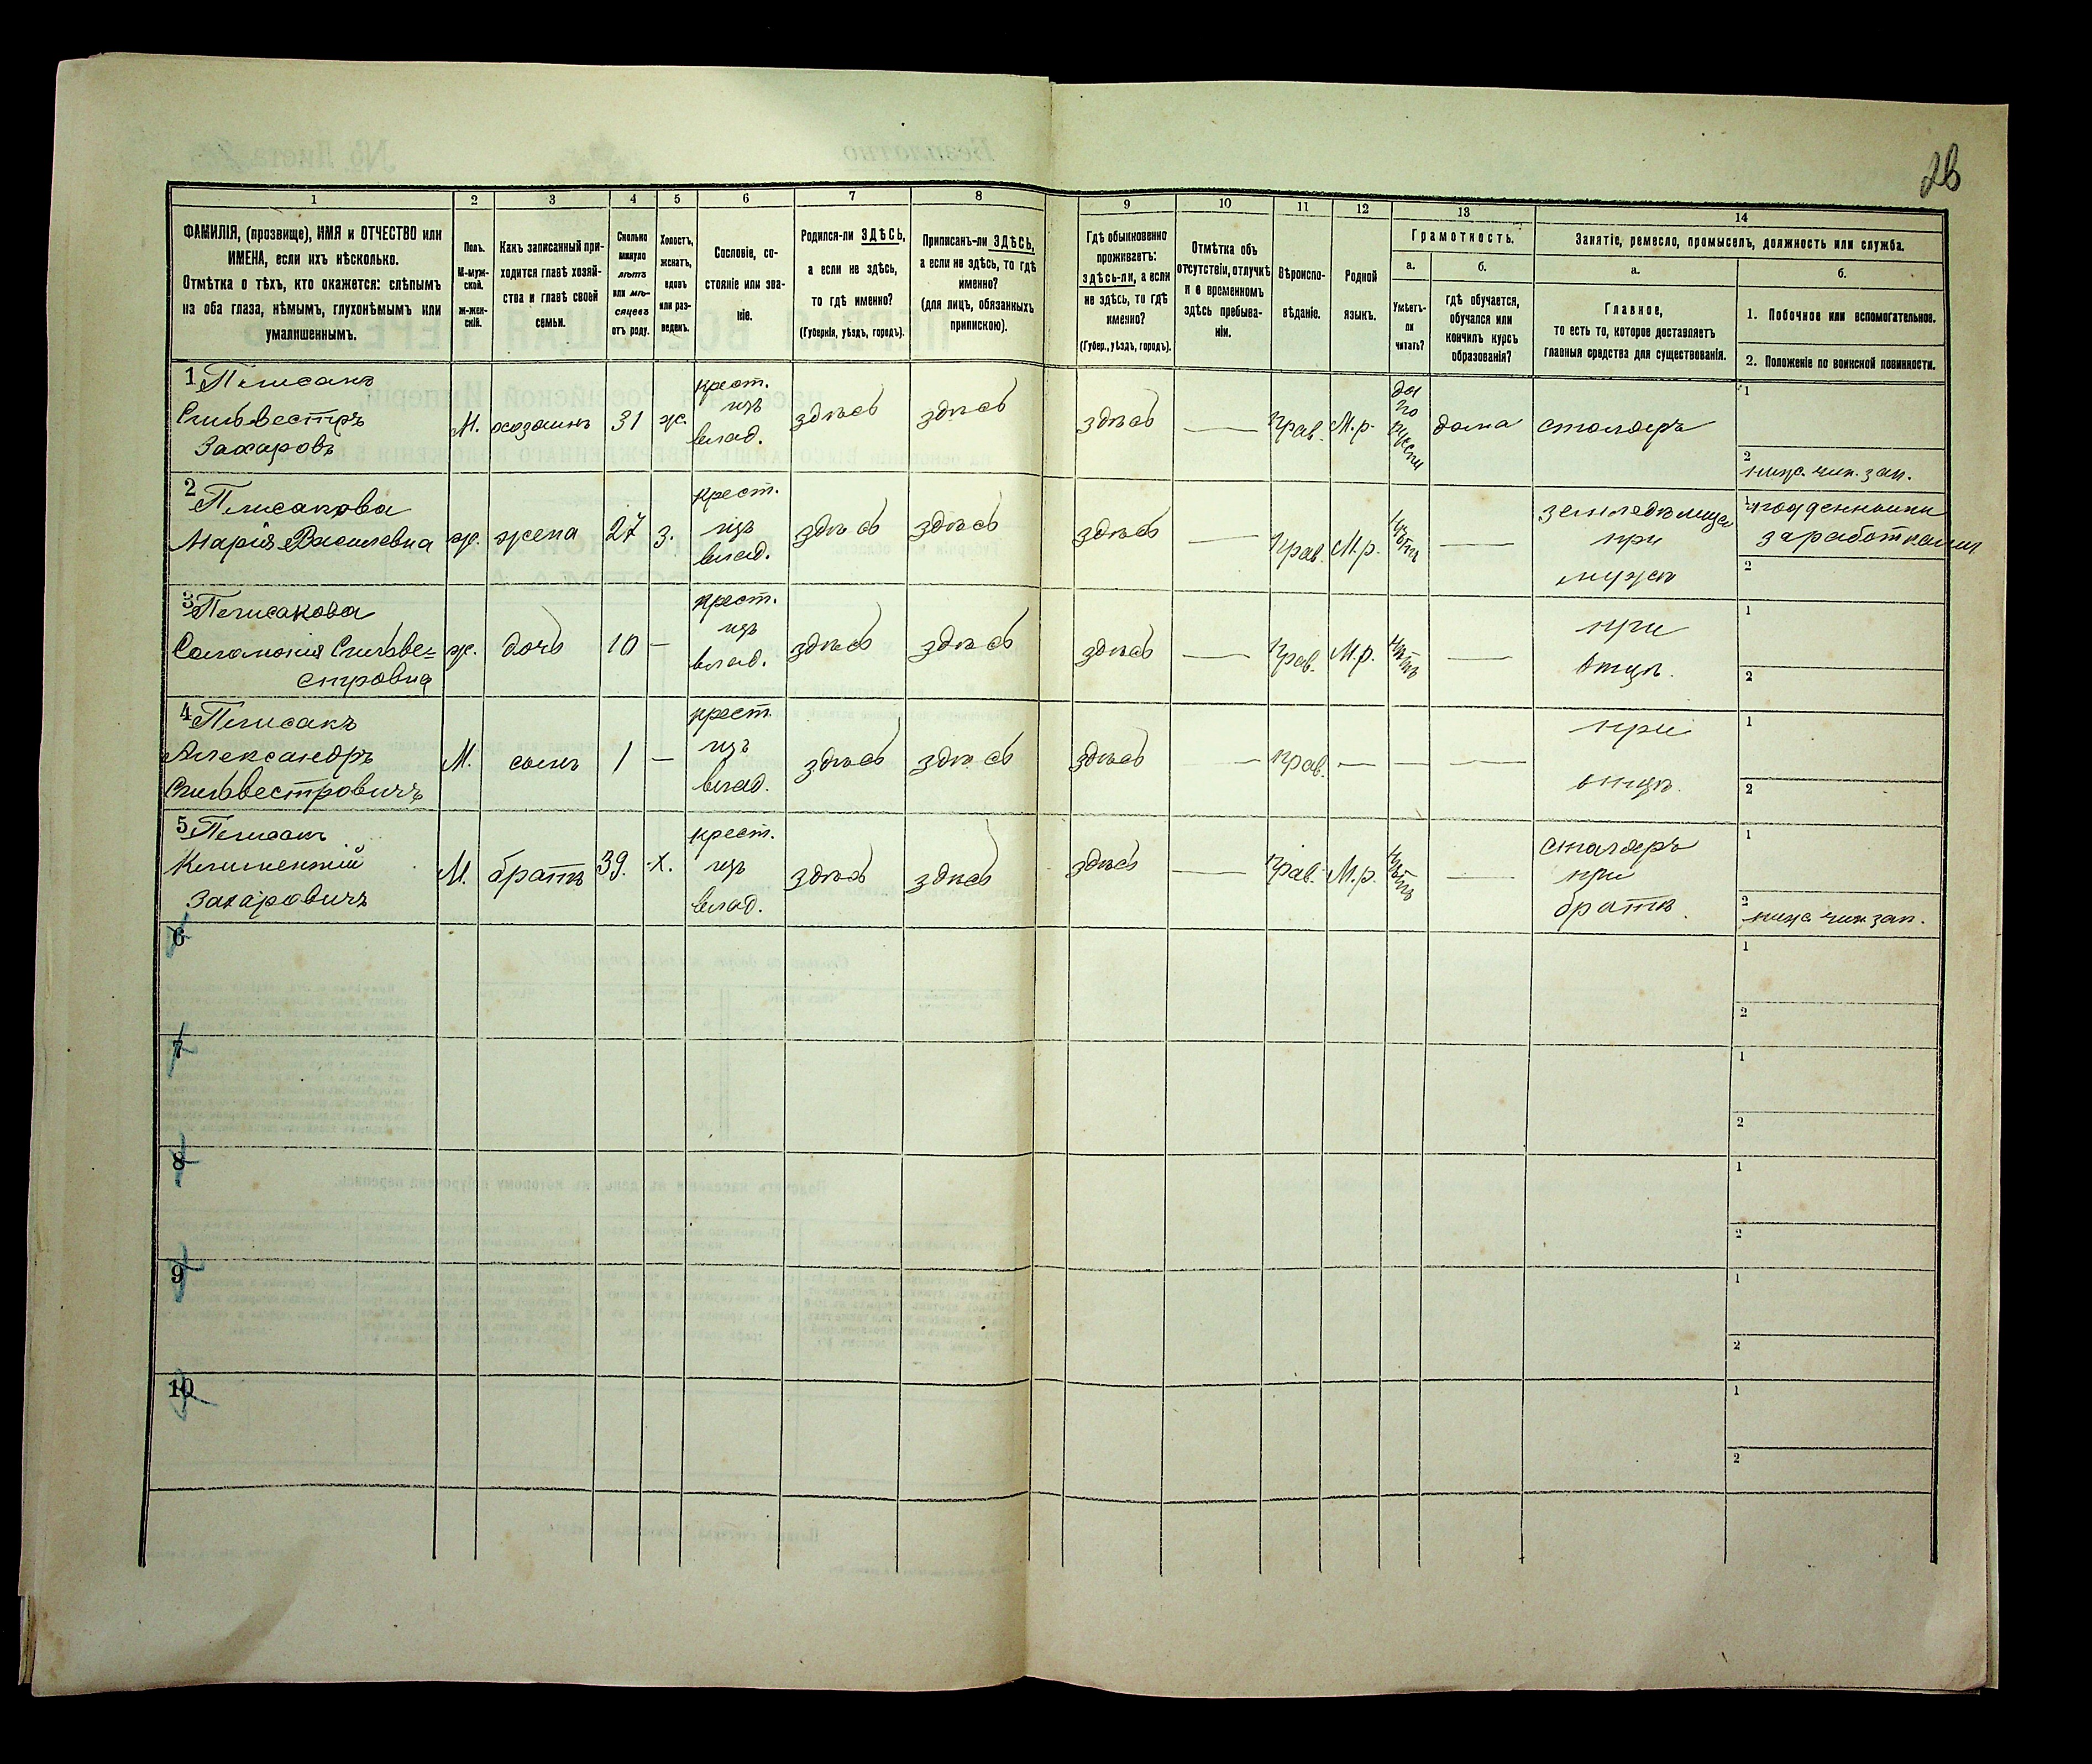 26
1 2 3 4 5 6 7 8 9 10 11 12 13 14
ФАМИЛІЯ, (прозвище), ИМЯ и ОТЧЕСТВО или
ИМЕНА, если ихъ нѣсколько.
Отмѣтка о тѣхъ, кто окажется: слѣпымъ
на оба глаза, нѣмымъ, глухонѣмымъ или
умалишеннымъ.
Полъ.
М-муж-
ской.
Ж-жен-
скій.
Какъ записанный при-
ходится главѣ хозяй-
ства и главѣ своей
семьи.
Сколько
минуло
лѣтъ
или мѣ-
сяцевъ
отъ роду.
Холостъ,
женатъ,
вдовъ
или раз-
веденъ.
Сословіе, со-
стояніе или зва-
ніе.
Родился-ли ЗДѢСЬ,
а если не здѣсь,
то гдѣ именно?
(Губернія, уѣздъ, городъ).
Приписанъ-ли ЗДѢСЬ,
а если не здѣсь, то гдѣ
именно?
(для лицъ, обязанныхъ
припискою).
Гдѣ обыкновенно
проживаетъ:
здѣсь-ли, а если
не здѣсь, то гдѣ
именно?
(Губер., уѣздъ, городъ).
Отмѣтка объ
отсутствіи, отлучкѣ
и о временномъ
здѣсь пребыва-
ніи.
Вѣроиспо-
вѣданіе.
Родной
языкъ.
Грамотность.
а.
Умѣетъ-
ли
читать?
б.
гдѣ обучается,
обучался или
кончилъ курсъ
образованія?
Занятіе, ремесло, промыселъ, должность или служба.
а.
Главное,
то есть то, которое доставляетъ
главныя средства для существованія.
б.
1. Побочное или вспомогательное.
2. Положеніе по воинской повинности.
1
Сильвестръ
Захаровъ
М. хозаинъ 31 ж.
крест.
изъ
влад.
здѣсь здѣсь здѣсь прав. М.р.
да
по
русски
дома столяръ
1
2 ниж. чин. зап.
2
Марія Василевна
ж. жена 27 з.
крест.
изъ
влад.
здѣсь здѣсь здѣсь — прав. М.р. нѣтъ —
при
мужѣ
1
заработками
2
3
Соломонія Сильве=
стровна
ж. дочь 10 —
крест.
изъ
влад.
здѣсь здѣсь здѣсь — прав. М.р. нѣтъ —
при
отцѣ.
1
2
4
Александръ
Сильвестровичъ
М. сынъ 1 —
крест.
изъ
влад.
здѣсь здѣсь здѣсь — прав. — — —
при
отцѣ.
1
2
5
Климентій
Захаровичъ
М. братъ 39. х.
крест.
изъ
влад.
здѣсь здѣсь здѣсь — прав. М.р. нѣтъ —
столяръ
при
братѣ.
1
2 ниж. чин. зап.
6
1
2
7
1
2
8
1
2
9
1
2
10
1
2